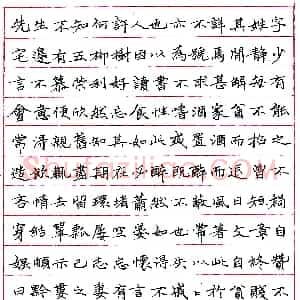 先生不知何許人也亦不詳其姓字
宅邊有五柳樹因以為號焉閑靜少
言不慕榮利好讀書不求甚解每有
會意便欣然忘食性嗜酒家貧不能
常得親舊知其如此或置酒而招之
造飲輒盡期在必醉既醉而退曾不
吝情去留環堵蕭然不蔽風日短褐
穿結簞瓢屢空晏如也常著文章自
娛頗示己志忘懷得失以此自終贊
曰黔婁之妻有言不戚〻於貧賤不